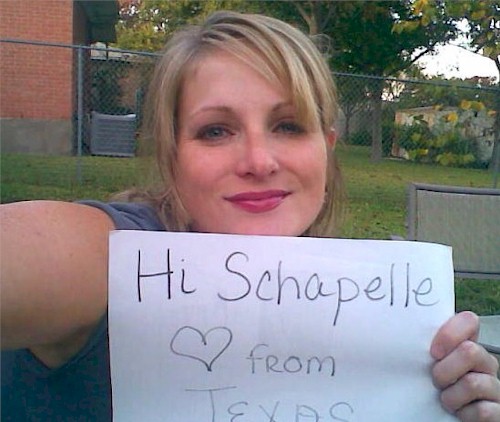 Hi Schapelle
♡ from
TEXAS